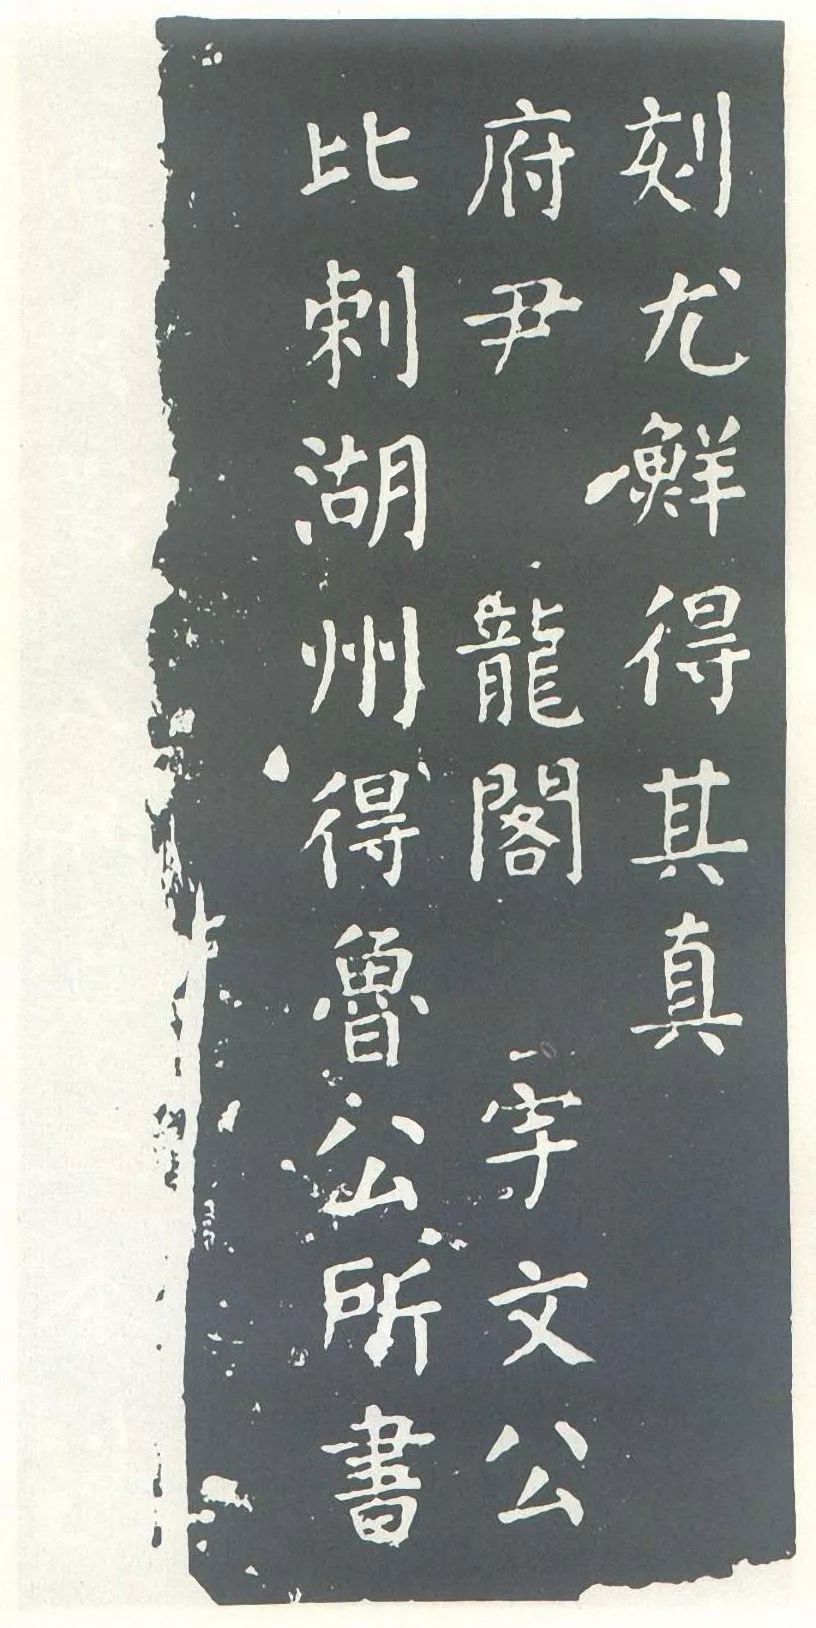 刻尤鮮得其真
府尹 龍閣 宇文公
比刺湖州得魯公所書